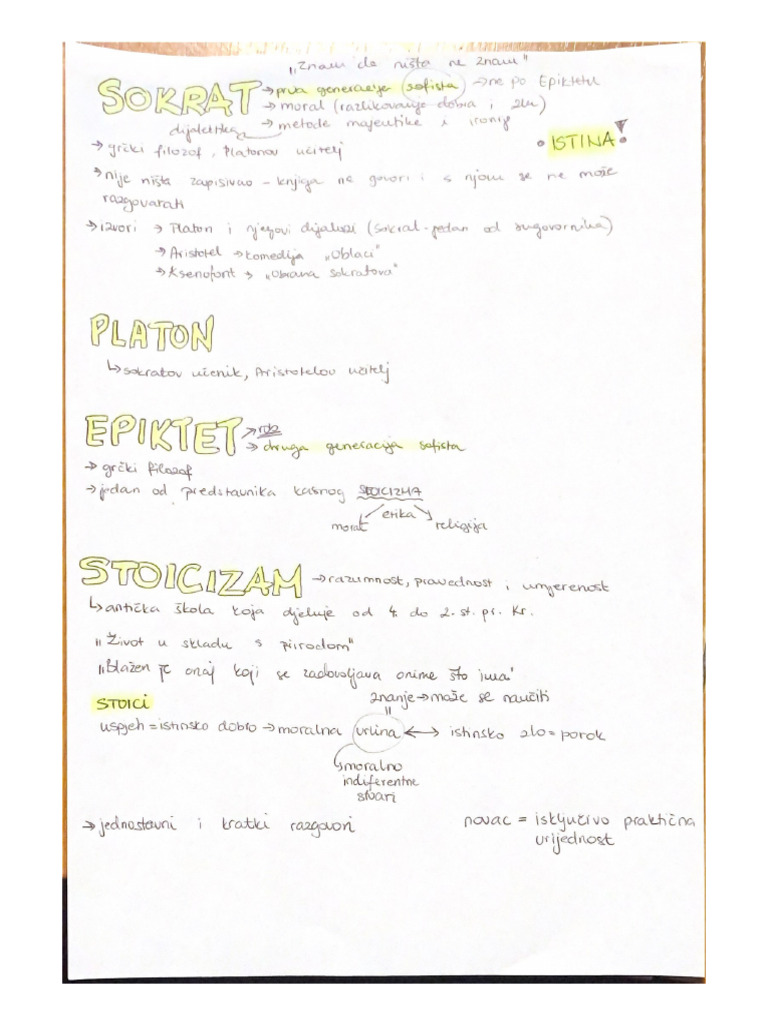 „Znam da ništa ne znam"
SOKRAT → prva generacija sofista → ne po Epiktetu
→ moral (razlikovanje dobra i zla)
dijalektika → metode majeutike i ironije
• ISTINA!
→ grčki filozof, Platonov učitelj
→ nije ništa zapisivao – knjiga ne govori i s njom se ne može
razgovarati
→ izvori → Platon i njegovi dijalozi (Sokrat - jedan od sugovornika)
→ Aristotel → komedija „Oblaci"
→ Ksenofont → „Obrana Sokratova"
PLATON
↳ sokratov učenik, Aristotelov učitelj
EPIKTET → rob
→ druga generacija sofista
→ grčki filozof
→ jedan od predstavnika kasnog STOICIZMA
moral etika religija
STOICIZAM → razumnost, pravednost i umjerenost
↳ antička škola koja djeluje od 4. do 2. st. pr. Kr.
„Život u skladu s prirodom"
„Blažen je onaj koji se zadovoljava onime što ima"
STOICI znanje → može se naučiti
=
uspjeh = istinsko dobro → moralna vrlina ↔ istinsko zlo = porok
↳ moralno
indiferentne
stvari
→ jednostavni i kratki razgovori
novac = isključivo praktična
vrijednost